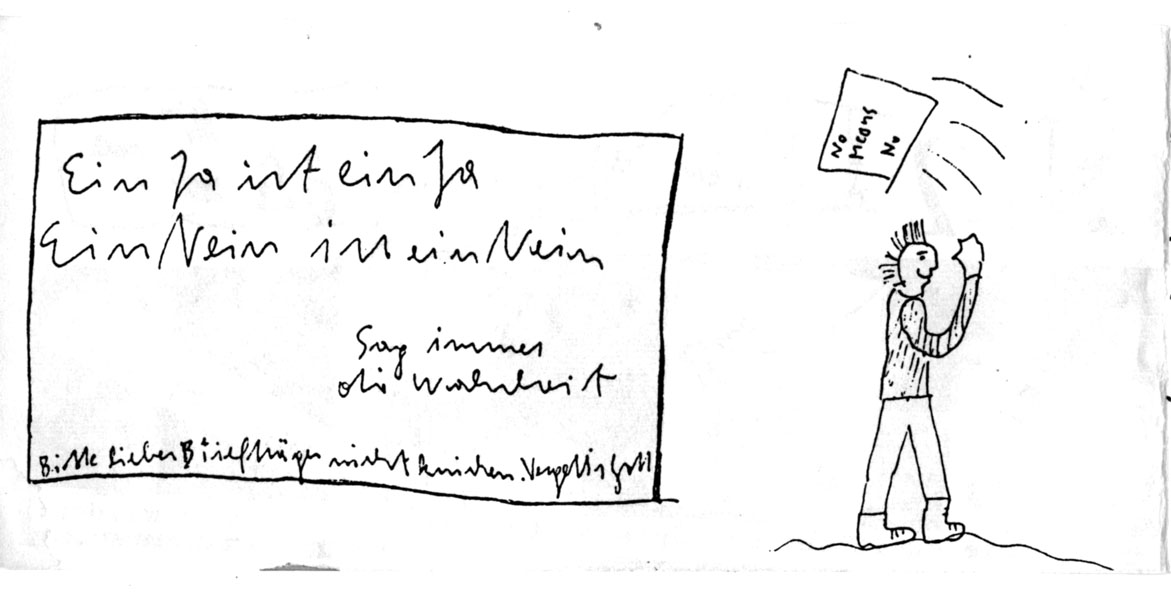 Ein Ja ist ein Ja
Ein Nein ist ein Nein
Sag immer
die Wahrheit
Bitte lieber Briefträger nicht knicken. Vergelts Gott
No
Means
No